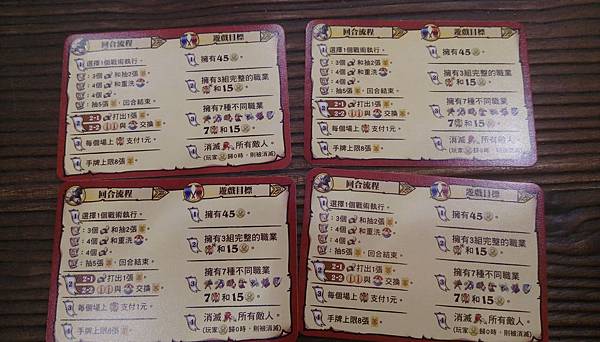 回合流程
選擇1個戰術執行。
:3個 和抽2張 。
:4個 和重洗 。
:4個 。
:抽5張 ，回合結束。
2-1 打出1張 。
2-2 與 交換 。
每個場上 支付1元。
手牌上限8張 。
遊戲目標
擁有45 。
擁有3組完整的職業
和15 。
擁有7種不同職業
7 和15 。
消滅 所有敵人。
(玩家 歸0時，則被消滅)
回合流程
選擇1個戰術執行。
:3個 和抽2張 。
:4個 和重洗 。
:4個 。
:抽5張 ，回合結束。
2-1 打出1張 。
2-2 與 交換 。
每個場上 支付1元。
手牌上限8張 。
遊戲目標
擁有45 。
擁有3組完整的職業
和15 。
擁有7種不同職業
7 和15 。
消滅 所有敵人。
(玩家 歸0時，則被消滅)
回合流程
選擇1個戰術執行。
:3個 和抽2張 。
:4個 和重洗 。
:4個 。
:抽5張 ，回合結束。
2-1 打出1張 。
2-2 與 交換 。
每個場上 支付1元。
手牌上限8張 。
遊戲目標
擁有45 。
擁有3組完整的職業
和15 。
擁有7種不同職業
7 和15 。
消滅 所有敵人。
(玩家 歸0時，則被消滅)
回合流程
選擇1個戰術執行。
:3個 和抽2張 。
:4個 和重洗 。
:4個 。
:抽5張 ，回合結束。
2-1 打出1張 。
2-2 與 交換 。
每個場上 支付1元。
手牌上限8張 。
遊戲目標
擁有45 。
擁有3組完整的職業
和15 。
擁有7種不同職業
7 和15 。
消滅 所有敵人。
(玩家 歸0時，則被消滅)